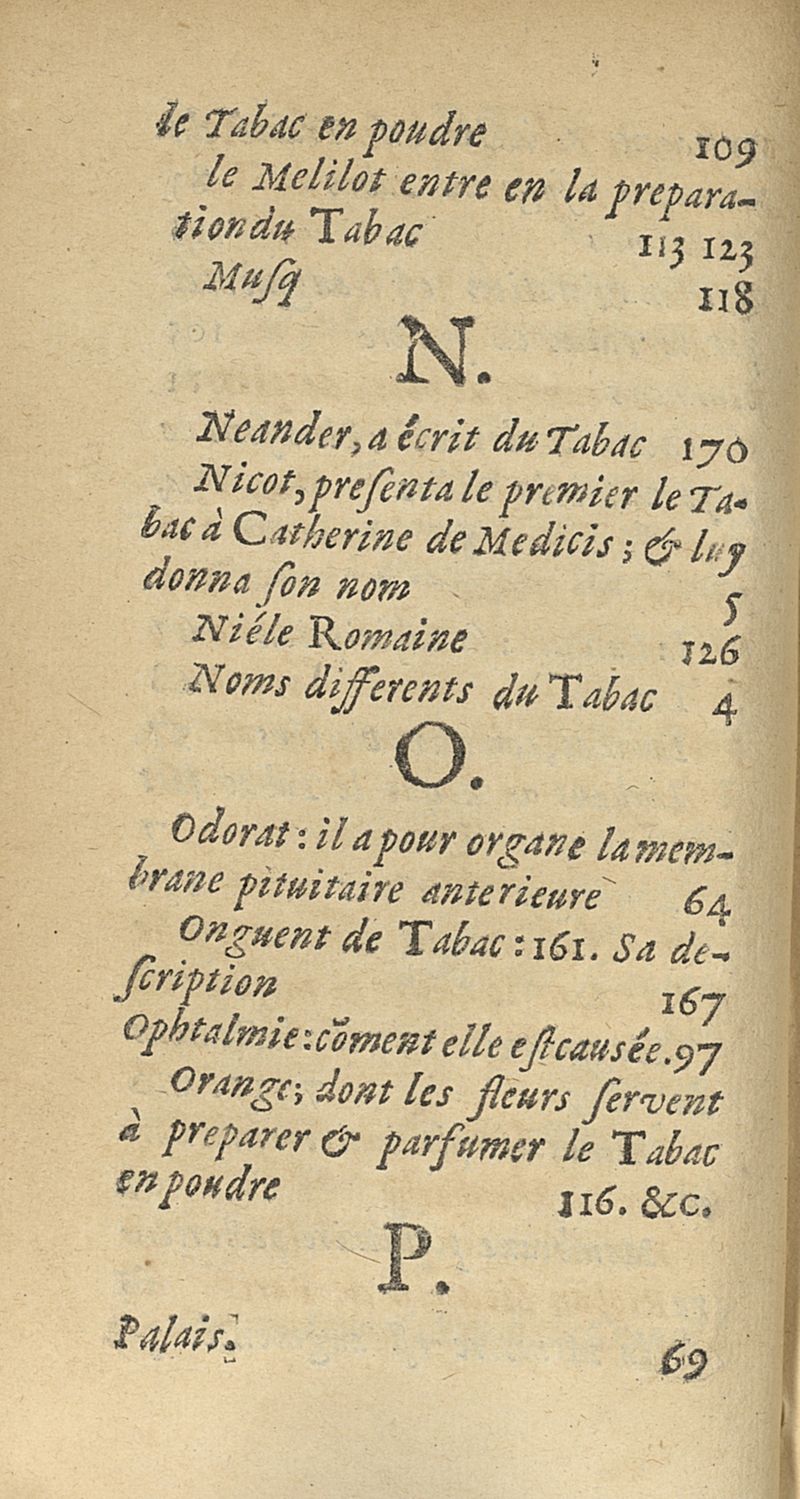 le Tabac en poudre 109
le Melilot entre en la prepara-
tion du Tabac 113 123
Muſq 118
N.
Neander, a écrit du Tabac 170
Nicot, preſenta le premier le Ta-
bac à Catherine de Medicis ; & luy
donna ſon nom 5
Niéle Romaine 126
Noms differents du Tabac 4
O.
Odorat : il a pour organe la mem-
brane pituitaire anterieure 64
Onguent de Tabac : 161. Sa de-
ſcription 167
Ophtalmie : cõment elle eſt causée. 97
Orange; dont les fleurs ſervent
à preparer & parfumer le Tabac
en poudre 116. &c.
P.
Palais. 69